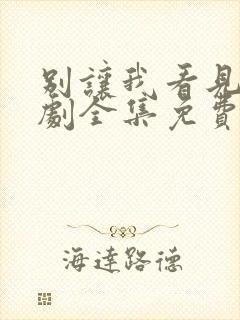 別讓我看見
劇全集免費
海達路德